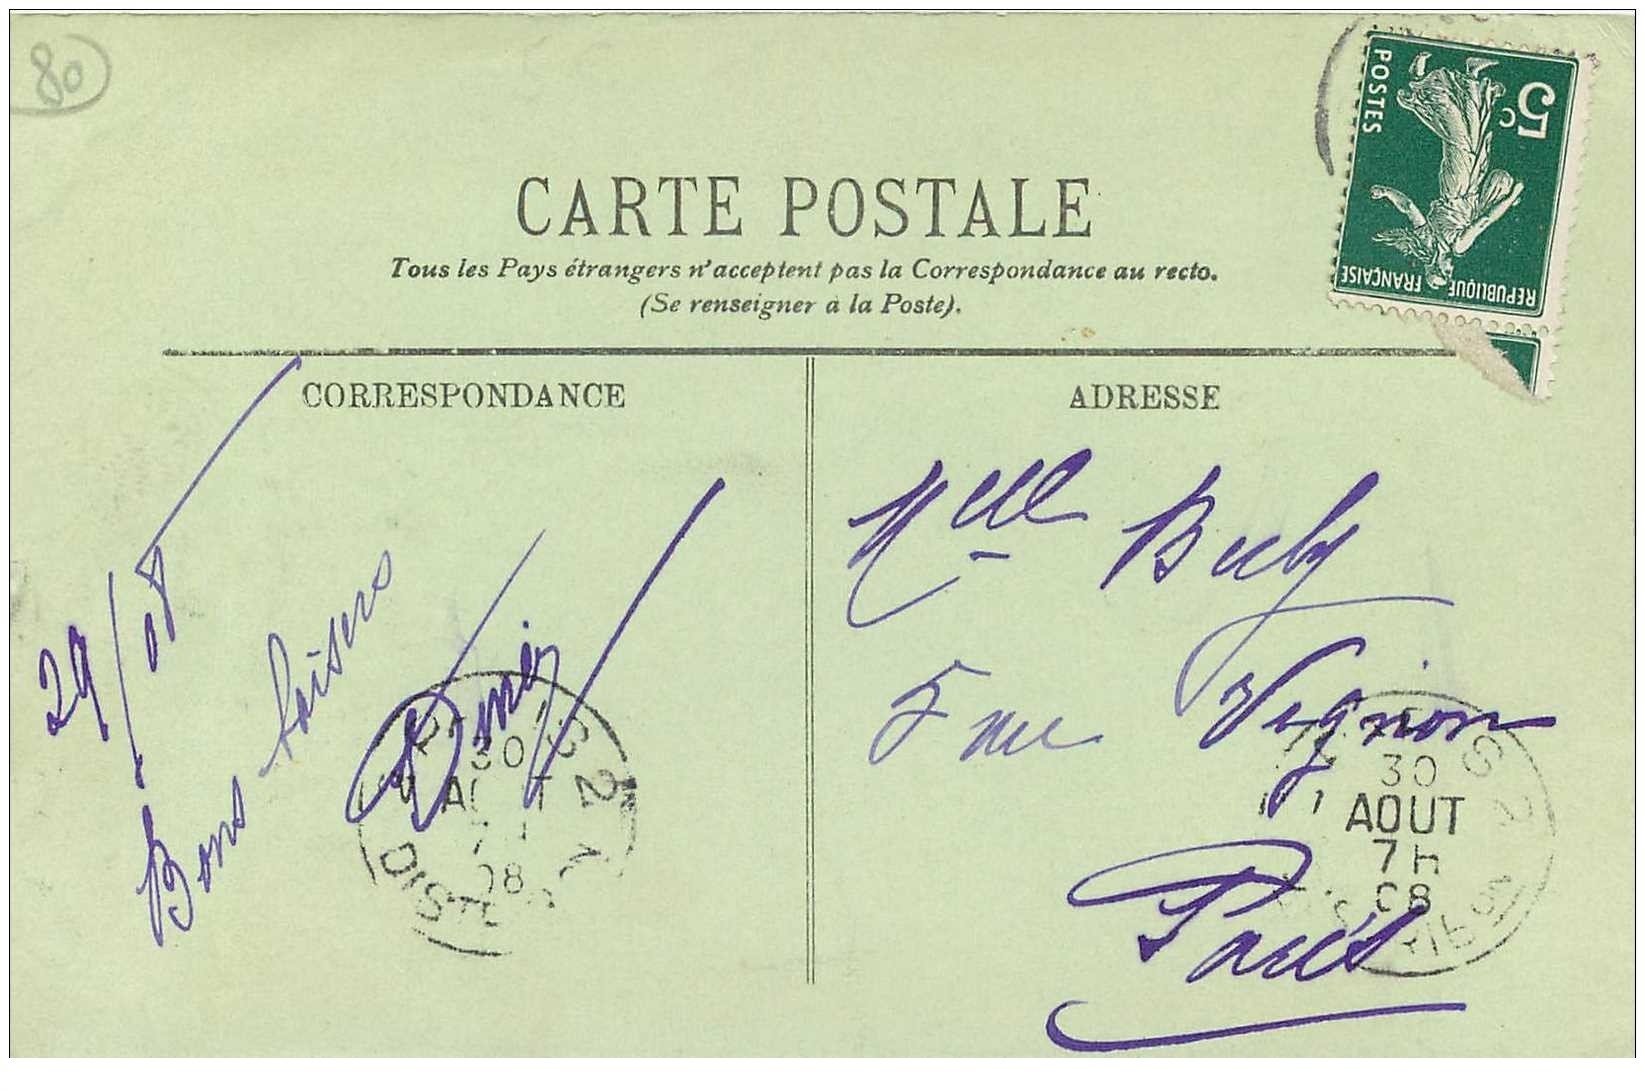 80
POSTES
5c
REPUBLIQUE FRANÇAISE
CARTE POSTALE
Tous les Pays étrangers n'acceptent pas la Correspondance au recto.
(Se renseigner à la Poste).
CORRESPONDANCE
29/08
Bons baisers
30
08
DIST
ADRESSE
Melle
5 rue Vignon
Paris
30
AOUT
7 H
08